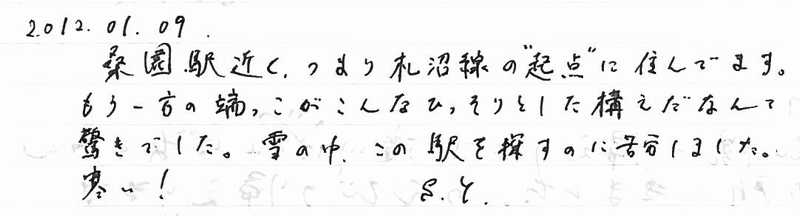 2012. 01. 09.
桑園駅近く、つまり札沼線の"起点"に住んでます。
もう一方の端っこがこんなひっそりとした構えだなんて
驚きでした。雪の中、この駅を探すのに苦労しました。
寒い! S.Y.